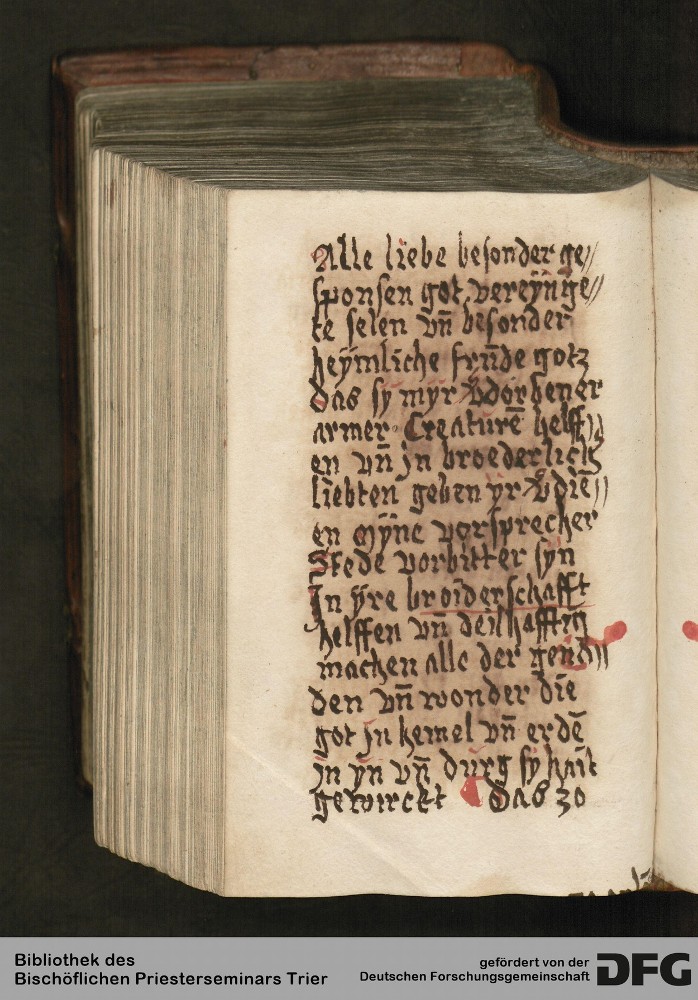 Alle liebe besonder ge//
sponsen got vereÿnge//
te selen vn̄ besonder
heÿmliche frūde gotz
Das sy mÿr v̄dorbener
armer Creaturē helff//
en vn̄ jn broederlich
liebten geben yr v̄diē//
en mÿne vorsprecher
Stede vorbitter sÿn
Jn ÿre broiderschafft
helffen vn̄ deilhafftig
machen alle der gend//
den vn̄ wonder die
got jn hemel vn̄ erdē
jn yn vn̄ durg sy hait
gewirckt Das zo
Bibliothek des
Bischöflichen Priesterseminars Trier
gefördert von der
Deutschen Forschungsgemeinschaft
DFG